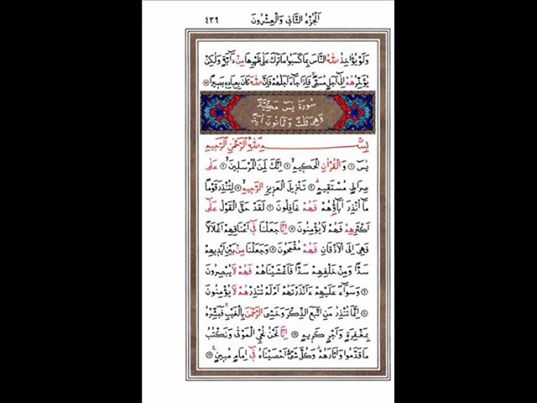 ٤٣٩ اَلْجُزْءُ الثَّانِي وَالْعِشْرُونَ
وَلَوْ يُؤَاخِذُ اللّٰهُ النَّاسَ بِمَا كَسَبُوا مَا تَرَكَ عَلٰى ظَهْرِهَا مِنْ دَٓابَّةٍ وَلٰكِنْ
يُؤَخِّرُهُمْ اِلٰٓى اَجَلٍ مُسَمًّى فَاِذَا جَٓاءَ اَجَلُهُمْ فَاِنَّ اللّٰهَ كَانَ بِعِبَادِهِ بَصِيرًا
سُورَةُ يٰسٓ مَكِّيَّةٌ
وَهِيَ ثَلَاثٌ وَثَمَانُونَ اٰيَةً
بِسْمِ اللّٰهِ الرَّحْمٰنِ الرَّحِيمِ
يٰسٓ ١ وَالْقُرْاٰنِ الْحَكِيمِ ٢ اِنَّكَ لَمِنَ الْمُرْسَلِينَ ٣ عَلٰى
صِرَاطٍ مُسْتَقِيمٍ ٤ تَنْزِيلَ الْعَزِيزِ الرَّحِيمِ ٥ لِتُنْذِرَ قَوْمًا
مَٓا اُنْذِرَ اٰبَٓاؤُهُمْ فَهُمْ غَافِلُونَ ٦ لَقَدْ حَقَّ الْقَوْلُ عَلٰٓى
اَكْثَرِهِمْ فَهُمْ لَا يُؤْمِنُونَ ٧ اِنَّا جَعَلْنَا فِٓي اَعْنَاقِهِمْ اَغْلَالًا
فَهِيَ اِلَى الْاَذْقَانِ فَهُمْ مُقْمَحُونَ ٨ وَجَعَلْنَا مِنْ بَيْنِ اَيْدِيهِمْ
سَدًّا وَمِنْ خَلْفِهِمْ سَدًّا فَاَغْشَيْنَاهُمْ فَهُمْ لَا يُبْصِرُونَ
٩ وَسَوَٓاءٌ عَلَيْهِمْ ءَاَنْذَرْتَهُمْ اَمْ لَمْ تُنْذِرْهُمْ لَا يُؤْمِنُونَ
١٠ اِنَّمَا تُنْذِرُ مَنِ اتَّبَعَ الذِّكْرَ وَخَشِيَ الرَّحْمٰنَ بِالْغَيْبِ فَبَشِّرْهُ
بِمَغْفِرَةٍ وَاَجْرٍ كَرِيمٍ ١١ اِنَّا نَحْنُ نُحْيِ الْمَوْتٰى وَنَكْتُبُ
مَا قَدَّمُوا وَاٰثَارَهُمْ وَكُلَّ شَيْءٍ اَحْصَيْنَاهُ فِٓي اِمَامٍ مُبِينٍ ١٢